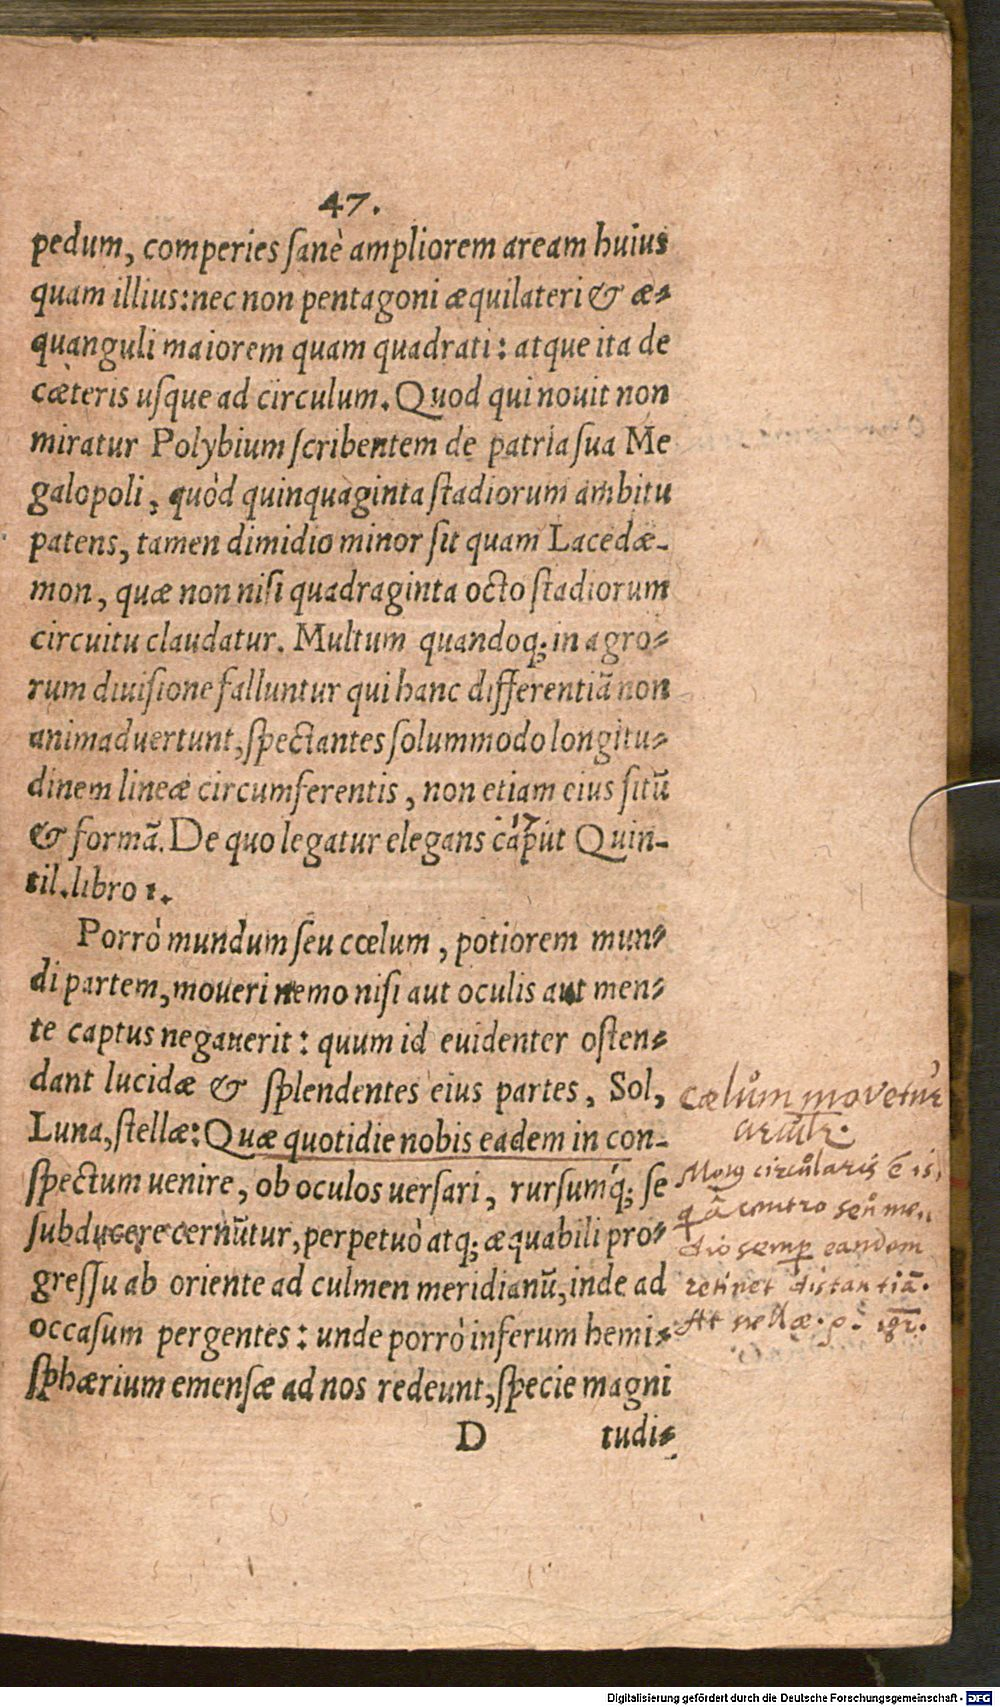 47.
pedum, comperies sanè ampliorem aream huius
quam illius: nec non pentagoni æquilateri & æ⸗
quanguli maiorem quam quadrati: atque ita de
cæteris usque ad circulum. Quod qui nouit non
miratur Polybium scribentem de patria sua Me
galopoli, quòd quinquaginta stadiorum ambitu
patens, tamen dimidio minor sit quam Lacedæ-
mon, quæ non nisi quadraginta octo stadiorum
circuitu claudatur. Multum quandoq; in agro⸗
rum diuisione falluntur qui hanc differentiā non
animaduertunt, spectantes solummodo longitu⸗
dinem lineæ circumferentis, non etiam eius sitū
& formā. De quo legatur elegans caput Quin-
til. libro 1.
Porrò mundum seu cœlum, potiorem mun⸗
di partem, moueri nemo nisi aut oculis aut men⸗
te captus negauerit: quum id euidenter osten⸗
dant lucidæ & splendentes eius partes, Sol,
Luna, stellæ: Quæ quotidie nobis eadem in con-
spectum uenire, ob oculos uersari, rursumq́; se
subducere cernūtur, perpetuò atq; æquabili pro⸗
gressu ab oriente ad culmen meridianū, inde ad
occasum pergentes: unde porrò inferum hemi⸗
sphærium emensæ ad nos redeunt, specie magni
D tudi⸗
17
cælum movetur
circulr.
Motus circularis ē is,
q ā centro seu me..
dio semp eandem
retinet distantiā.
At stellæ. . igr.
Digitalisierung gefördert durch die Deutsche Forschungsgemeinschaft - DFG